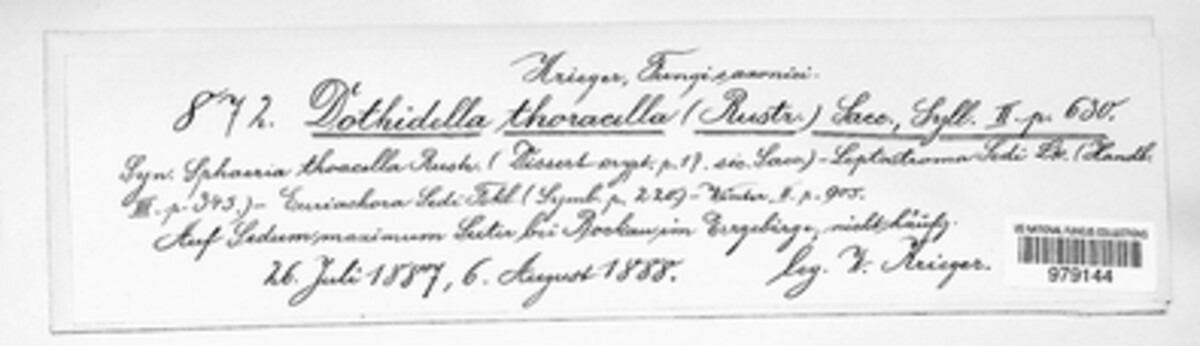 Krieger, Fungi saxonici.
872. Dothidella thoracella (Rustr.) Sacc., Syll. II. p. 630.
Syn. Sphaeria thoracella Rustr. ( Dissert crypt. p. 17. sic. Sacc.) - Leptostroma Sedi Lk. (Handb.
III. p. 345.) - Euriachora Sedi Fckl (Symb. p. 220) - Winter II. p. 905.
Auf Sedum maximum Suter bei Bockau im Erzgebirge, nicht häufig.
26. Juli 1887, 6. August 1888. leg. W. Krieger.
US NATIONAL FUNGUS COLLECTIONS
979144